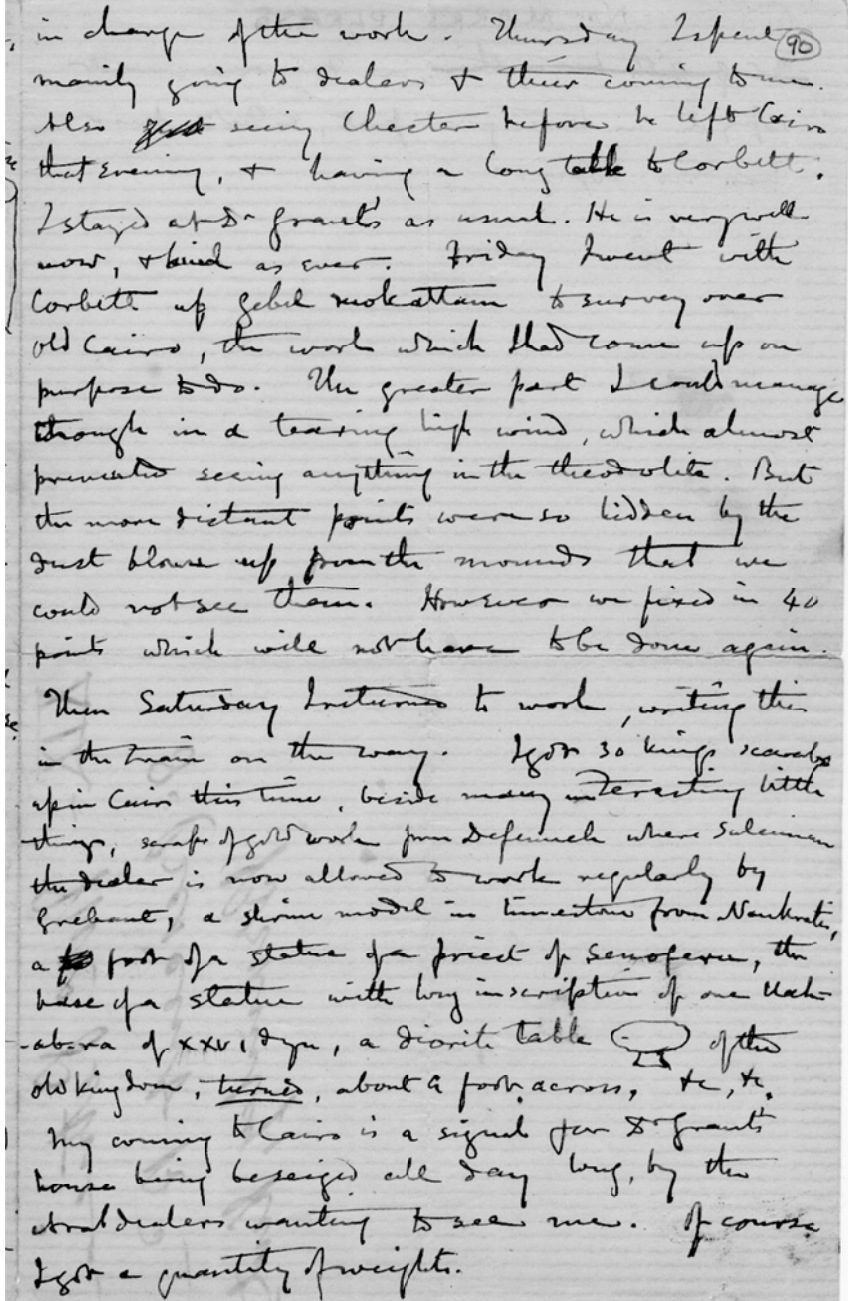 in charge of the work. Thursday I spent 90
mainly going to dealers & their coming to me.
Also seeing Chester before he left Cairo
that evening, & having a long talk to Corbett.
I stayed at Dr Grant's as usual. He is very well
now, & kind as ever. Friday I went with
Corbett up Gebel Mokattam to survey over
old Cairo, the work which I had come up on
purpose to do. The greater part I could manage
though in a tearing high wind, which almost
prevented seeing anything in the theodolite. But
the more distant points were so hidden by the
dust blown up from the mounds that we
could not see them. However we fixed in 40
points which will not have to be done again.
Then Saturday I returned to work, writing this
in the train on the way. I got 30 kings scarabs
up in Cairo this time, beside many interesting little
things, scraps of gold work from Defenneh where Suleiman
the dealer is now allowed to work regularly by
Grebaut, a shrine model in limestone from Naukratis,
a foot of a statue of a priest of Senoferu, the
base of a statue with long inscription of one Uah-
-ab-ra of XXVI dyn, a diorite table of the
old kingdom, turned, about a foot across, &c, &c.
My coming to Cairo is a signal for Dr Grant's
house being beseiged all day long, by the
Arab dealers wanting to see me. Of course
I got a quantity of weights.